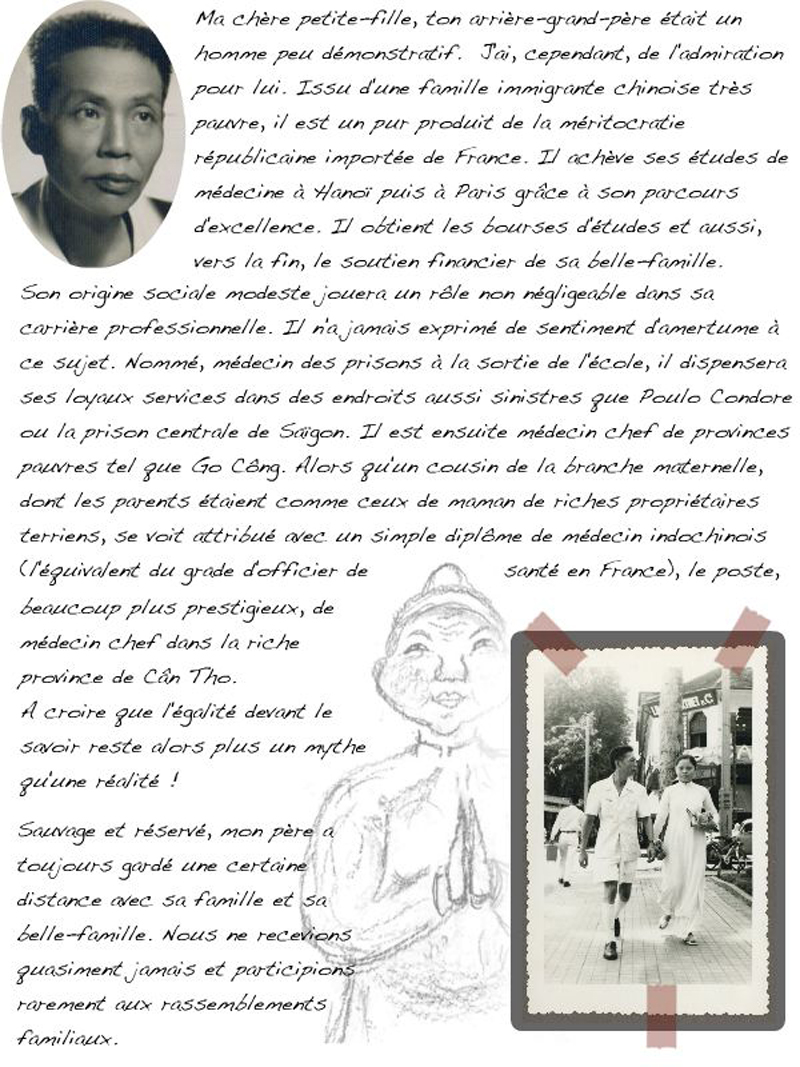 Ma chère petite-fille, ton arrière-grand-père était un
homme peu démonstratif. J'ai, cependant, de l'admiration
pour lui. Issu d'une famille immigrante chinoise très
pauvre, il est un pur produit de la méritocratie
républicaine importée de France. Il achève ses études de
médecine à Hanoï puis à Paris grâce à son parcours
d'excellence. Il obtient les bourses d'études et aussi,
vers la fin, le soutien financier de sa belle-famille.
Son origine sociale modeste jouera un rôle non négligeable dans sa
carrière professionnelle. Il n'a jamais exprimé de sentiment d'amertume à
ce sujet. Nommé, médecin des prisons à la sortie de l'école, il dispensera
ses loyaux services dans des endroits aussi sinistres que Poulo Condore
ou la prison centrale de Saïgon. Il est ensuite médecin chef de provinces
pauvres tel que Go Công. Alors qu'un cousin de la branche maternelle,
dont les parents étaient comme ceux de maman de riches propriétaires
terriens, se voit attribué avec un simple diplôme de médecin indochinois
(l'équivalent du grade d'officier de santé en France), le poste,
beaucoup plus prestigieux, de
médecin chef dans la riche
province de Cân Tho.
A croire que l'égalité devant le
savoir reste alors plus un mythe
qu'une réalité !
Sauvage et réservé, mon père a
toujours gardé une certaine
distance avec sa famille et sa
belle-famille. Nous ne recevions
quasiment jamais et participions
rarement aux rassemblements
familiaux.